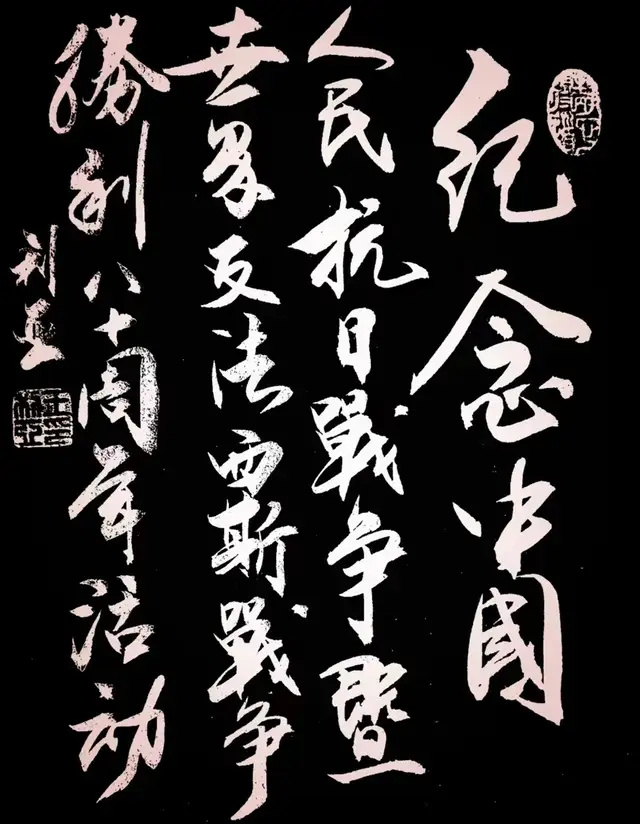 纪念中國
人民抗日戰争暨
世界反法西斯戰争
勝利八十周年活动